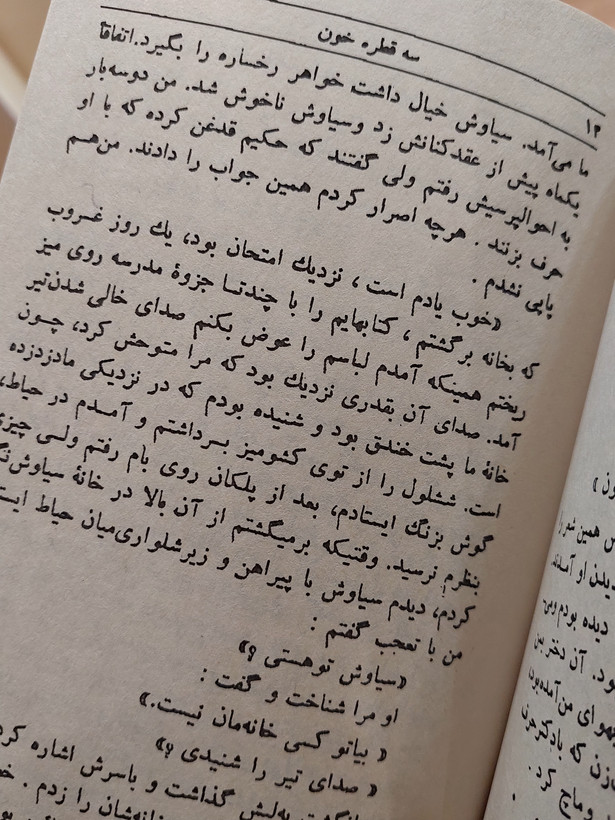 سه قطره خون
۱۴
ما می‌آمد. سیاوش خیال داشت خواهر رخساره را بگیرد. اتفاقاً
یکماه پیش از عقدکنانش زد و سیاوش ناخوش شد. من دوسه‌بار
به احوالپرسیش رفتم ولی گفتند که حکیم قدغن کرده که با او
حرف بزنند . هرچه اصرار کردم همین جواب را دادند. من‌هم
پاپی نشدم .
«خوب یادم است ، نزدیك امتحان بود، یك روز غروب
که بخانه برگشتم ، کتابهایم را با چندتا جزوهٔ مدرسه روی میز
ریختم همینکه آمدم لباسم را عوض بکنم صدای خالی شدن‌تیر
آمد. صدای آن بقدری نزدیك بود که مرا متوحش کرد، چون
خانهٔ ما پشت خندق بود و شنیده بودم که در نزدیکی مادزدزده
است. ششلول را از توی کشومیز برداشتم و آمدم در حیاط،
گوش بزنگ ایستادم، بعد از پلکان روی بام رفتم ولی چیزی
بنظرم نرسید. وقتیکه برمیگشتم از آن بالا در خانهٔ سیاوش
کردم، دیدم سیاوش با پیراهن و زیرشلواری‌میان حیاط
من با تعجب گفتم :
«سیاوش توهستی ؟»
او مرا شناخت و گفت :
« بیاتو کسی خانه‌مان نیست.»
« صدای تیر را شنیدی ؟»
به‌لبش گذاشت و باسرش اشاره
را زدم .
همین شعر را
دیدن او آمدند
دیده بودم
آن دختر
من‌آمده‌بود
که بادکرد
ماچ کرد .